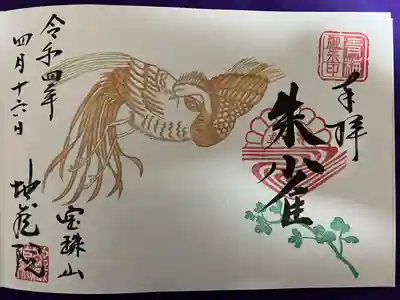 奉拝
朱雀
令和四年
四月十六日
宝珠山
地蔵院